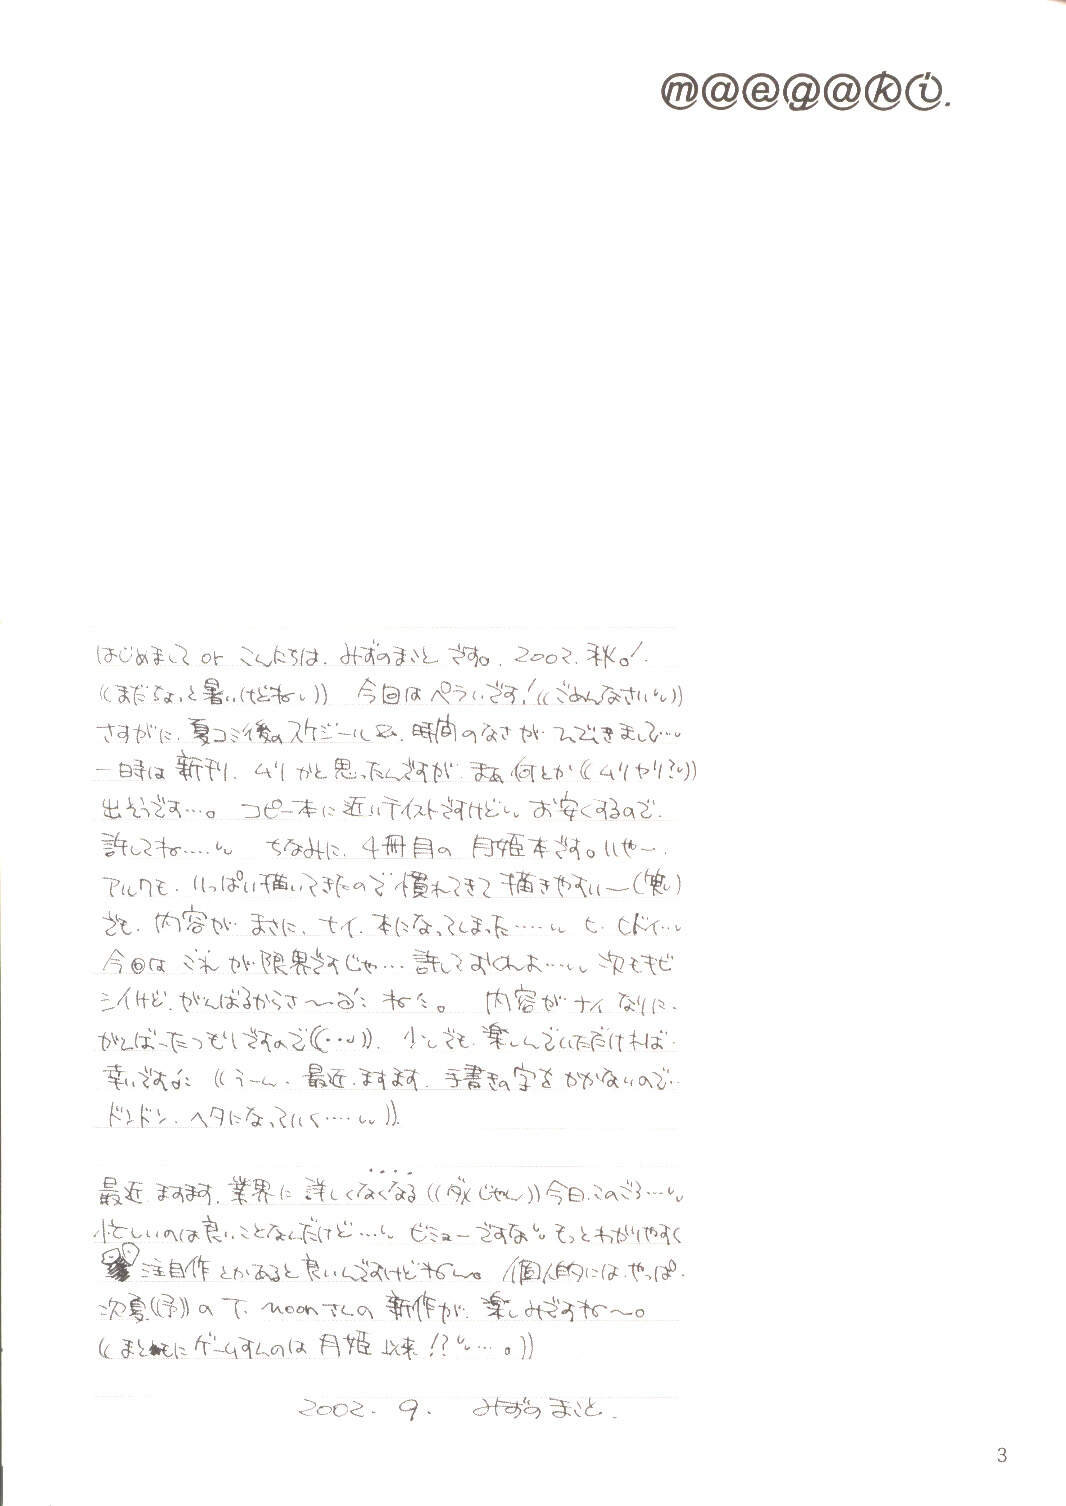 maegaki.
はじめまして or こんにちは. みずのまこと です。 2002. 秋。!
((まだちょっと暑いけどねぃ)) 今回はペラいです!((ごめんなさいぃ))
さすがに. 夏コミ後のスケジール 時間のなさが できまして…
一時は 新刊. ムリかと思ったんですが. まぁ 何とか((ムリヤリ?))
出そうです…。 コピー本に近いテイストですけどぃ. お安くするので.
許してね…… ちなみに. 4冊目の 月姫本です。いやー.
アルクも. いっぱい描いてきたので 慣れてきて 描きやすいー(笑)
でも. 内容が. まさに. ナイ. 本になってしまった…… ヒ. ヒドイ…
今回は これ が 限界ですじゃ… 許しておくれよ… 次もキビ
シイけど. がんばるからさ〜 ね。 内容が ナイ なりに.
がんばったつもりですので((…)). 少しでも 楽しんでいただければ.
幸いです ((うーん. 最近. ますます. 手書きの字を かかないので…
ドンドン. ヘタになっていく……)).
最近 ますます. 業界に 詳しくなくなる ((ダメじゃん))今日.このごろ…
忙しいのは 良いことなんだけど… ビミョーですな もっとわかりやすく
注目作 とかあると 良いんですけどねー。 個人的には.やっぱ.
次夏((予))の T. moonさんの 新作が. 楽しみですね〜。
((まともに ゲームすんのは 月姫 以来!?…。))
2002. 9. みずの まこと.
3